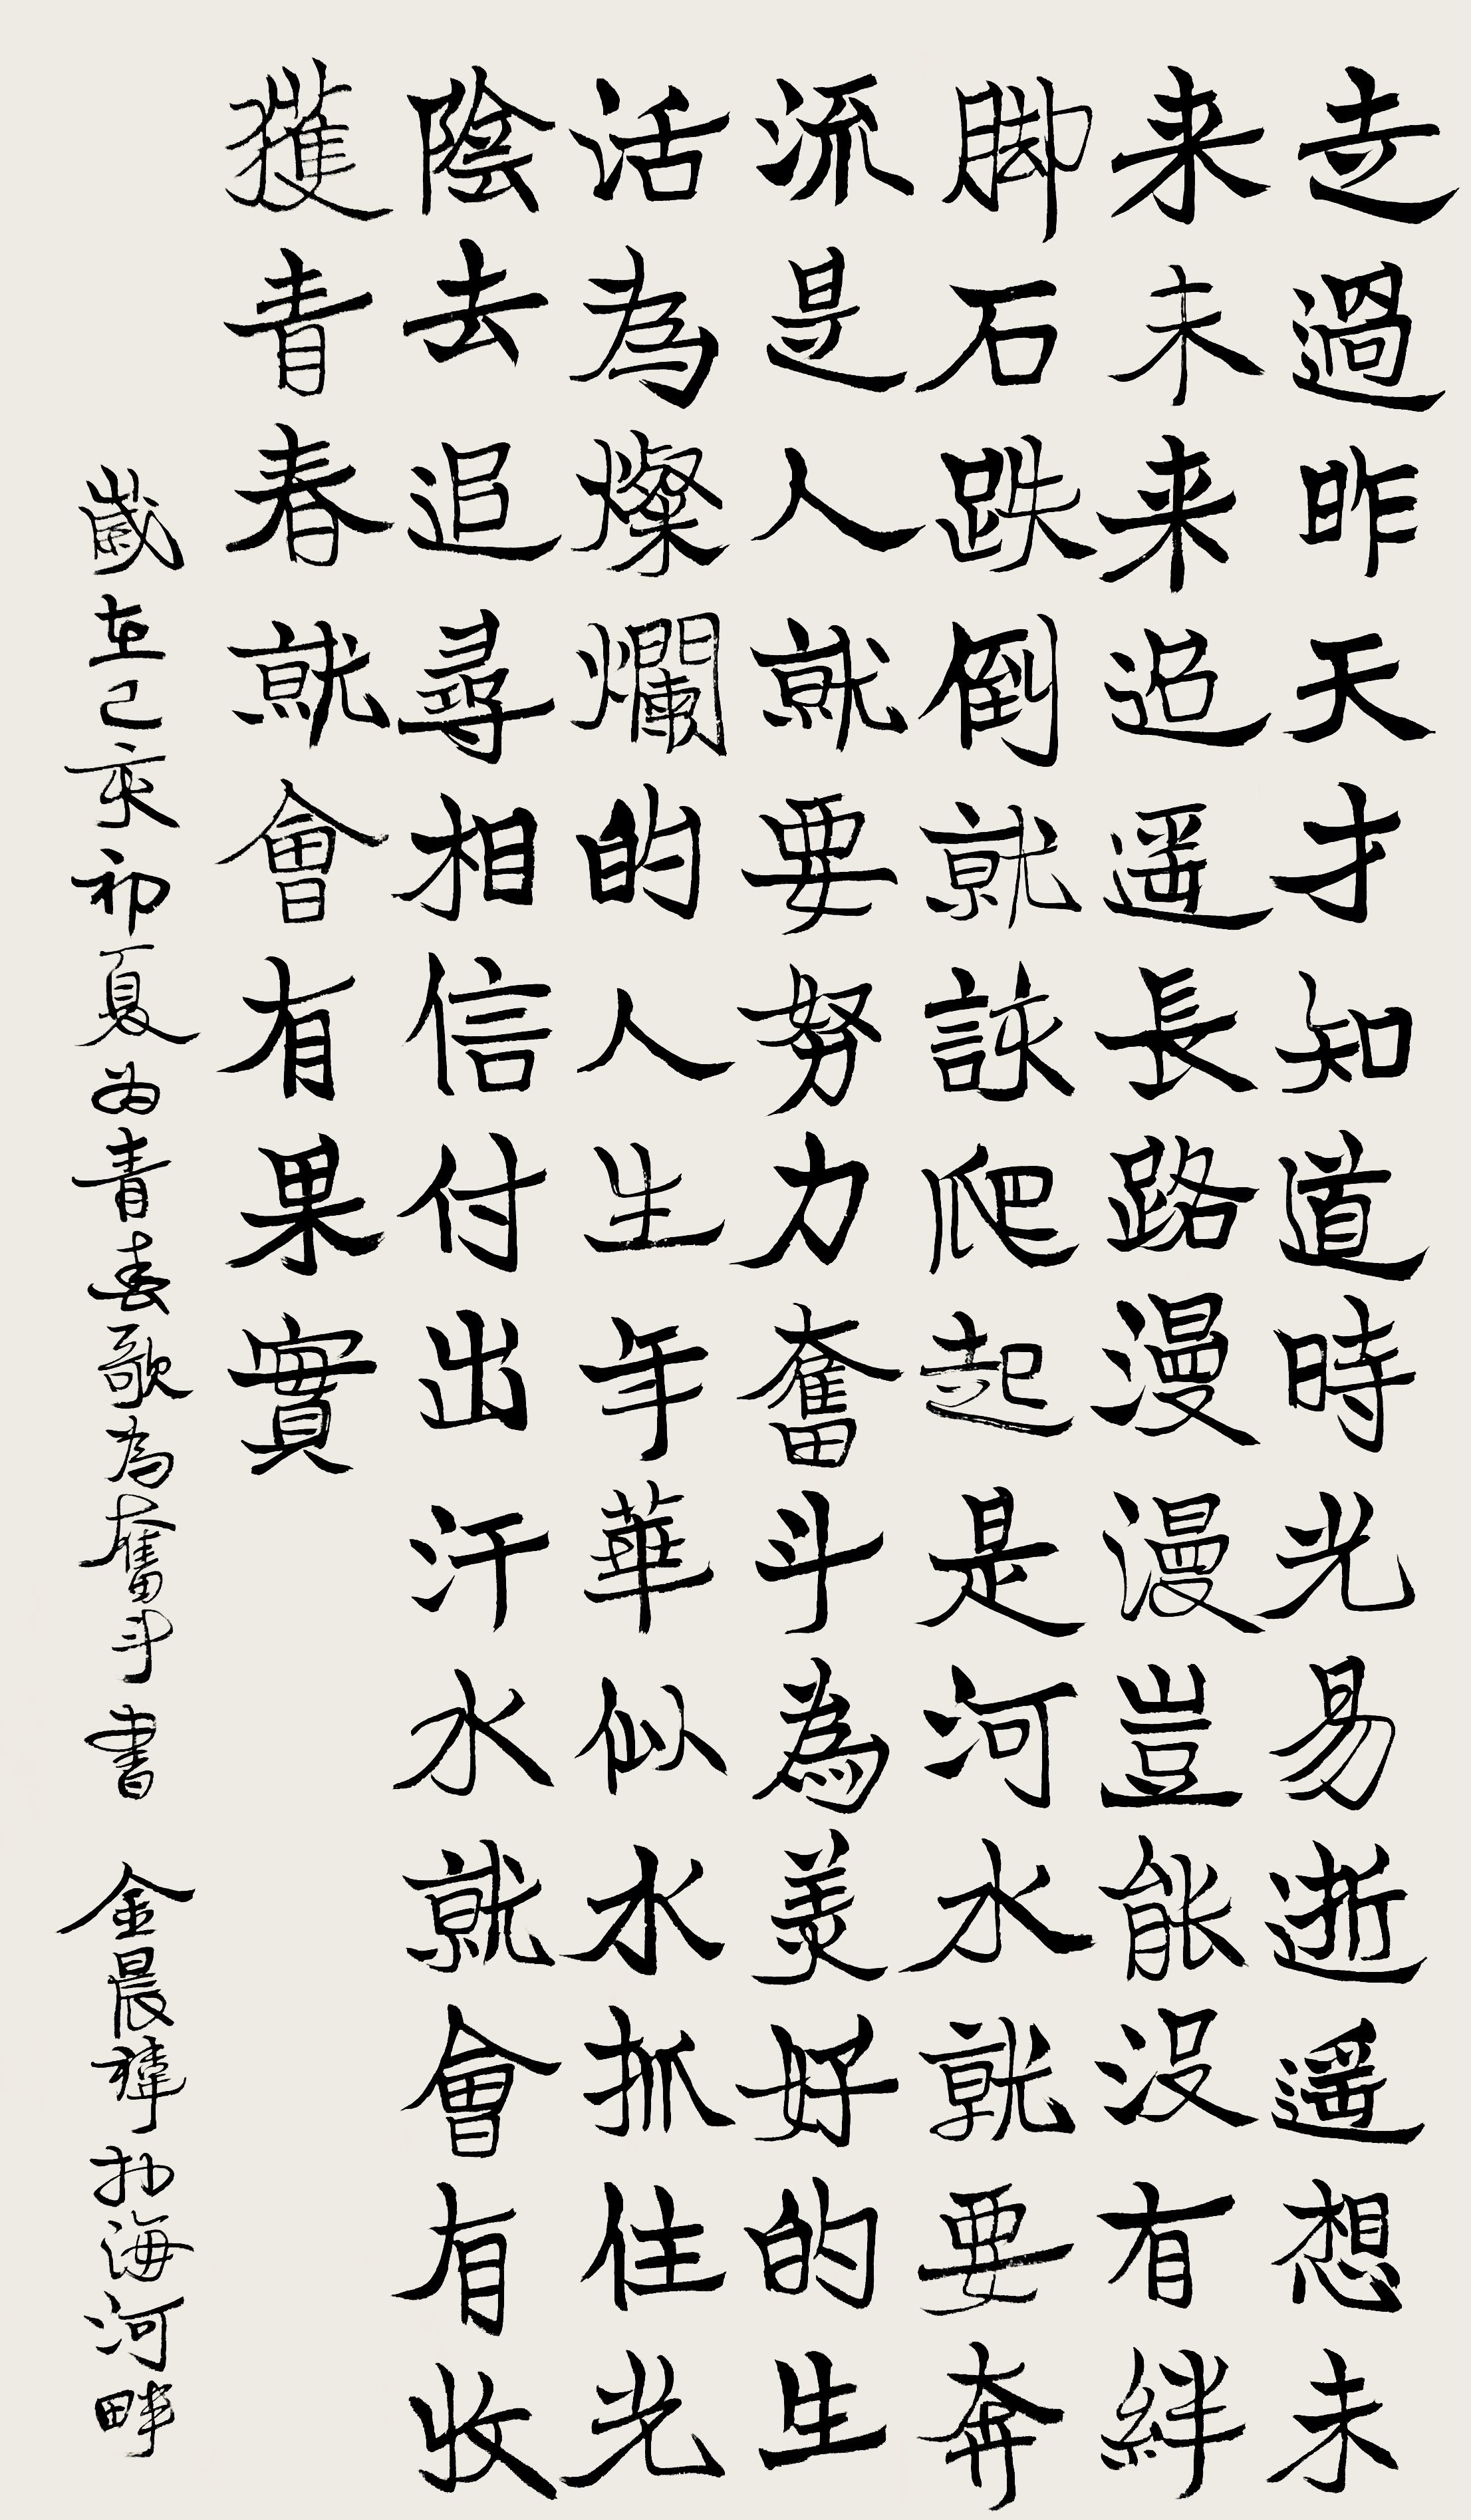 走過昨天才知道時光易逝遥想未
来未来迢遥長路漫漫豈能没有絆
脚石跌倒就該爬起是河水就要奔
流是人就要努力奮斗為美好的生
活為燦爛的人生年華似水抓住光
陰去追尋相信付出汗水就會有收
獲青春就會有果實
歲在己亥初夏为青春歌為奮斗書 金晨禕於海河畔